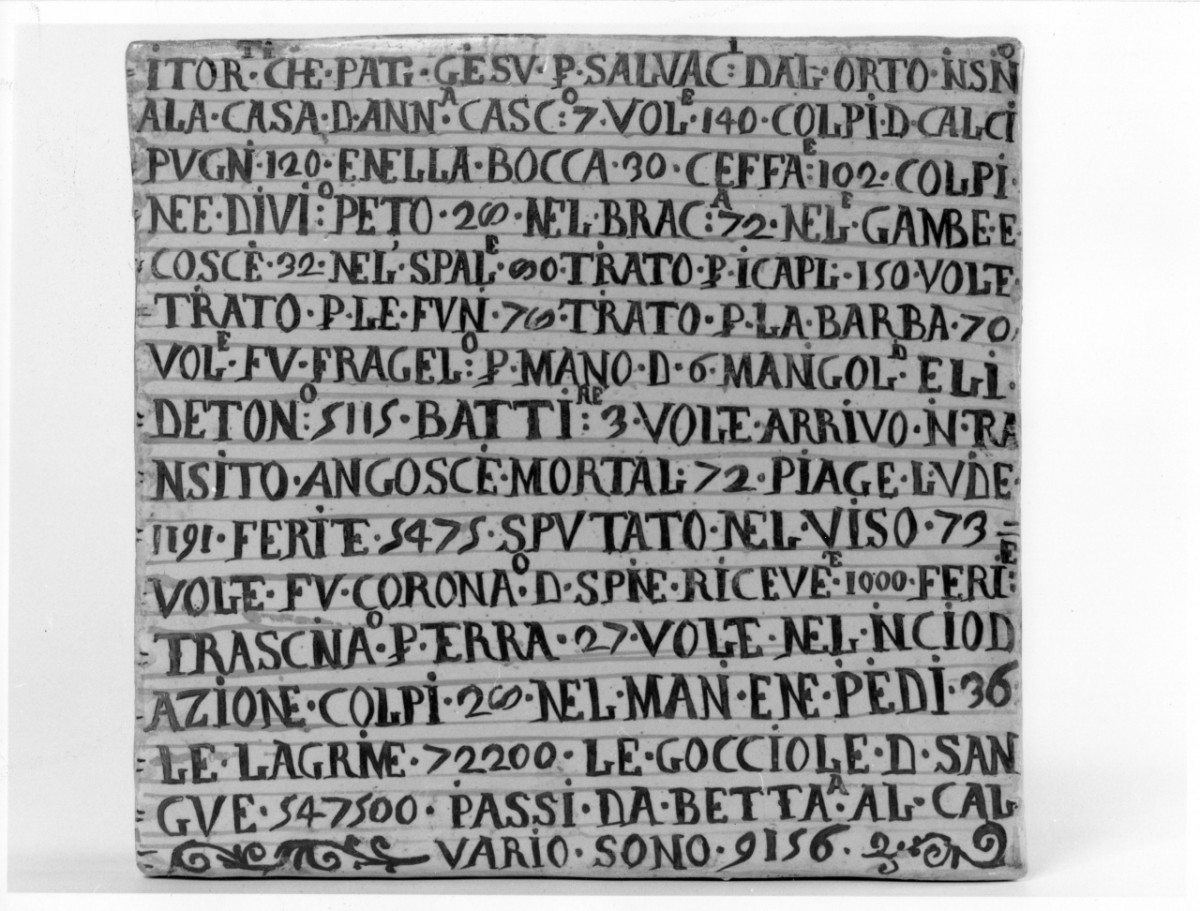 ITOR·TI CHE·PATI·GESV·P·SALVACI: DAL·ORTO·INSNO
ALA·CASA·D·ANNA·CASCO:7·VOLE·140·COLPI·D·CALCI
PVGNI·120·ENELLA·BOCCA·30·CEFFAE:102·COLPI·
NEE·DIVIO:PETO·28·NEL·BRACA:72·NELE·GAMBE·E
COSCE·32·NEL·SPALE·80·TRATO·P·ICAPL·150·VOLTE
TRATO·P·LE·FVNI·78·TRATO·P·LA·BARBA·70
VOLE·FV·FRAGELO:P·MANO·D·6·MANIGOLD·ELI·
DETONO:5115·BATTIRE:3·VOLTE·ARRIVO·IN·TRA
NSITO·ANGOSCE·MORTAL:72·PIAGE·LIVIDE·
1191·FERITE·5475·SPVTATO·NEL·VISO·73
VOLTE·FV·CORONAO·D·SPINE·RICEVETE·1000·FERIE:
TRASCINAO·P·TERRA·27·VOLTE·NEL·INCIOD
AZIONE·COLPI·28·NEL·MANI·ENE·PIEDI·36
LE·LAGRIME·72200·LE·GOCCIOLE·D·SAN
GVE·547500·PASSI·DA·BETTAA:AL·CAL
VARIO·SONO·9156·